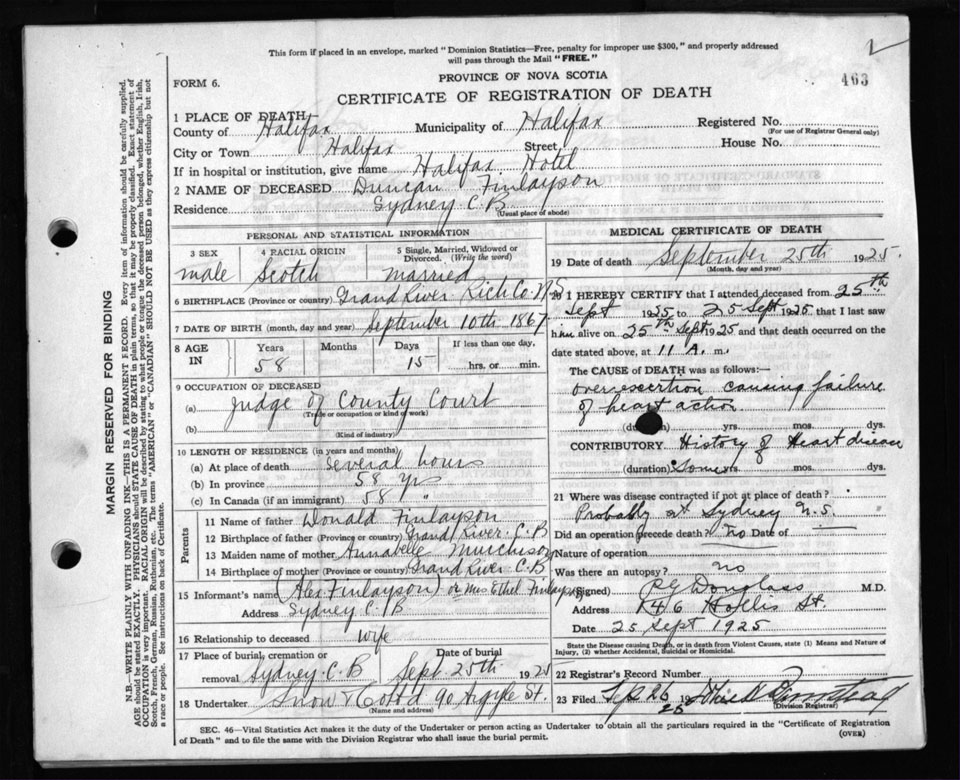 This form if placed in an envelope, marked "Dominion Statistics—Free, penalty for improper use $300," and properly addressed
will pass through the Mail "FREE."
463
FORM 6.
PROVINCE OF NOVA SCOTIA
CERTIFICATE OF REGISTRATION OF DEATH
1 PLACE OF DEATH
County of Halifax Municipality of Halifax Registered No.
(For use of Registrar General only)
City or Town Halifax Street House No.
If in hospital or institution, give name Halifax Hotel
2 NAME OF DECEASED Duncan Finlayson
Residence Sydney C.B
(Usual place of abode)
PERSONAL AND STATISTICAL INFORMATION
3 SEX male
4 RACIAL ORIGIN Scotch
5 Single, Married, Widowed or Divorced. (Write the word) married
6 BIRTHPLACE (Province or country) Grand River Rich Co. N.S
7 DATE OF BIRTH (month, day and year) September 10th 1867
8 AGE IN Years 58 Months Days 15 If less than one day, hrs. or min.
9 OCCUPATION OF DECEASED
(a) Judge of County Court
(Trade or occupation or kind of work)
(b)
(Kind of industry)
10 LENGTH OF RESIDENCE (in years and months)
(a) At place of death Several hours
(b) In province 58 yrs
(c) In Canada (if an immigrant) 58 "
Parents
11 Name of father Donald Finlayson
12 Birthplace of father (Province or country) Grand River C.B
13 Maiden name of mother Annabelle Murchison
14 Birthplace of mother (Province or country) Grand River C.B
15 Informant's name (Alex Finlayson) or Mrs Ethel Finlayson
Address Sydney C.B
16 Relationship to deceased wife
17 Place of burial, cremation or removal Sydney C.B Date of burial Sept 25th 1925
18 Undertaker Snow & Co Ltd 90 Argyle St.
(Name and address)
MEDICAL CERTIFICATE OF DEATH
19 Date of death September 25th 1925.
(Month, day and year)
20 I HEREBY CERTIFY that I attended deceased from 25th
Sept 1925 to 25 Sept 1925 that I last saw
him alive on 25th Sept 1925 and that death occurred on
date stated above, at 11 A. m.
The CAUSE of DEATH was as follows:—
overexertion causing failure
of heart action.
(duration) yrs. mos. dys.
CONTRIBUTORY History of Heart disease
(duration) Some yrs. mos. dys.
21 Where was disease contracted if not at place of death?
Probably at Sydney N.S.
Did an operation precede death? No Date of
Nature of operation
Was there an autopsy? no
(Signed) Douglass M.D.
Address 246 Hollis St.
Date 25 Sept 1925
State the Disease causing Death, or in death from Violent Causes, state (1) Means and Nature of
Injury, (2) whether Accidental, Suicidal or Homicidal.
22 Registrar's Record Number
23 Filed Sep 26 1925
(Division Registrar)
SEC. 46—Vital Statistics Act makes it the duty of the Undertaker or person acting as Undertaker to obtain all the particulars required in the "Certificate of Registration
of Death" and to file the same with the Division Registrar who shall issue the burial permit.
(OVER)
MARGIN RESERVED FOR BINDING
N.B.—WRITE PLAINLY WITH UNFADING INK—THIS IS A PERMANENT RECORD. Every item of information should be carefully supplied.
AGE should be stated EXACTLY. PHYSICIANS should STATE CAUSE OF DEATH in plain terms, so that it may be properly classified. Exact statement of
OCCUPATION is very important. RACIAL ORIGIN will be described by stating to what people or tongue the deceased person belonged, whether English, Irish,
Scotch, French, German, Russian, Ruthenian, etc. The terms "AMERICAN" or "CANADIAN" SHOULD NOT BE USED as they express citizenship but not
a race or people. See instructions on back of Certificate.